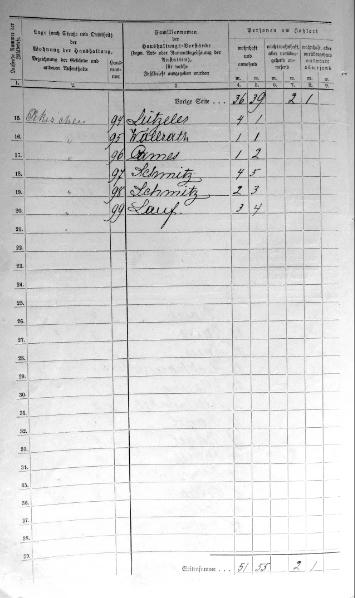 Laufende Nummer der Zählliste.
Lage (nach Straße und Ortsteil) der Wohnung der Haushaltung.
Bezeichnung der Gebäude und anderen Aufenthalte
Hausnummer
Familiennamen
der
Haushaltungs-Vorstände
(bezw. Vor- oder Namensbezeichnung der Anstalten),
für welche
Zählbriefe ausgegeben wurden
Personen am Zählort
wohnhaft und anwesend
m. w. m. w. m. w.
1. 2. 3. 4. 5. 6. 7. 8. 9.
Vorige Seite . . . 36 39 2 1
15. 94 Lützeler 4 1
16. " 95 Wallrath 1 1
17. 96 Cames 1 2
18. " 97 Schmitz 4 5
19. " 98 Schmitz 2 3
20. " 99 Lauf 3 4
21.
22.
23.
24.
25.
26.
27.
28.
29.
30.
31.
32.
33.
34.
35.
36.
37.
38.
39.
Seitensumme . . . 51 55 2 1